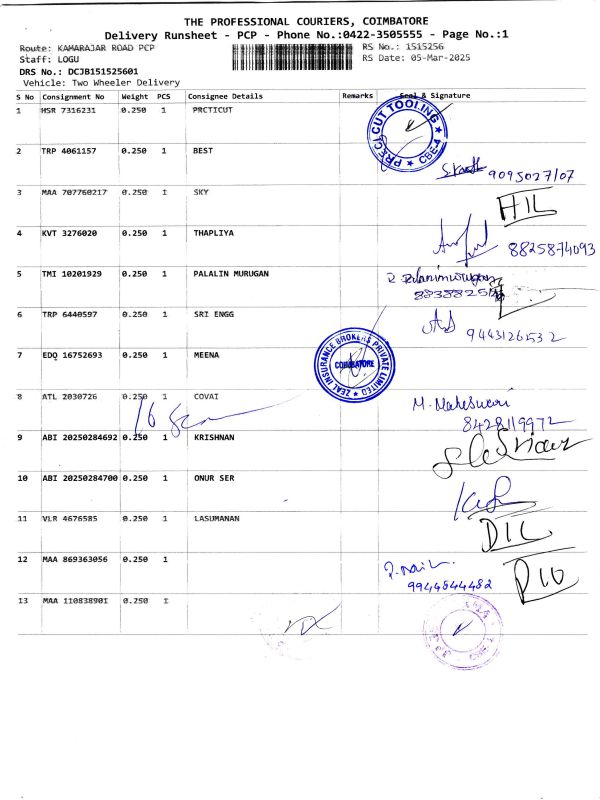 THE PROFESSIONAL COURIERS, COIMBATORE
Delivery Runsheet - PCP - Phone No.:0422-3505555 - Page No.:1
Route: KAMARAJAR ROAD PCP RS No.: 1515256
Staff: LOGU RS Date: 05-Mar-2025
DRS No.: DCJB151525601
Vehicle: Two Wheeler Delivery
S No Consignment No Weight PCS Consignee Details Remarks Seal & Signature
1 HSR 7316231 0.250 1 PRCTICUT
PRECI CUT TOOLING ★ CBE-4 ★
2 TRP 4061157 0.250 1 BEST
9095027107
3 MAA 707760217 0.250 1 SKY
HIL
4 KVT 3276020 0.250 1 THAPLIYA
8825874093
5 TMI 10201929 0.250 1 PALALIN MURUGAN
6 TRP 6440597 0.250 1 SRI ENGG
9443126532
7 EDQ 16752693 0.250 1 MEENA
ZEAL INSURANCE BROKERS PRIVATE LIMITED ★ COIMBATORE
8 ATL 2030726 0.250 1 COVAI
M. Maheswari
8428119972
9 ABI 20250284692 0.250 1 KRISHNAN
10 ABI 20250284700 0.250 1 ONUR SER
11 VLR 4676585 0.250 1 LASUMANAN
12 MAA 869363056 0.250 1
9944844482
13 MAA 110838901 0.250 1